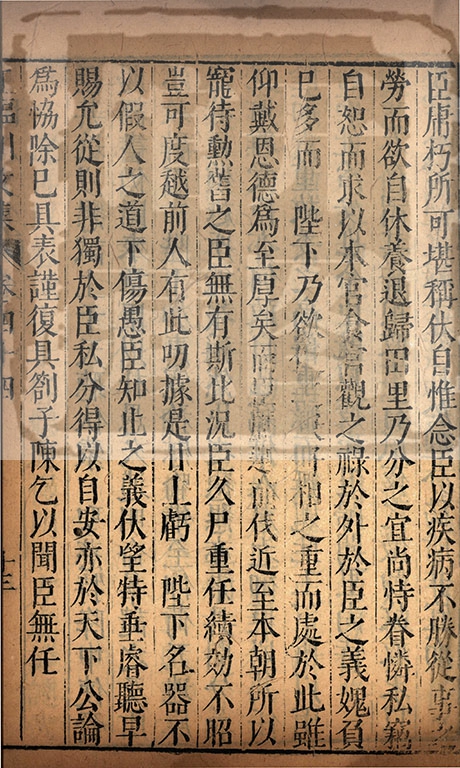 臣庸朽所可堪稱伏自惟念臣以疾病不勝從事
勞而欲自休養退歸田里乃分之宜尚恃眷憐私竊
自恕而求以本官食宮觀之祿於外於臣之義媿負
已多而 陛下乃欲之重而處於此雖
仰戴恩德爲至厚矣近至本朝所以
寵待勳舊之臣無有斯比況臣久尸重任績効不昭
豈可度越前人有此叨據是以上虧 陛下名器不
以假人之道下傷愚臣知止之義伏望特垂睿聽早
賜允從則非獨於臣私分得以自安亦於天下公論
爲協除已具表謹復具劄子陳乞以聞臣無任
臨川文集 卷四十四 十三